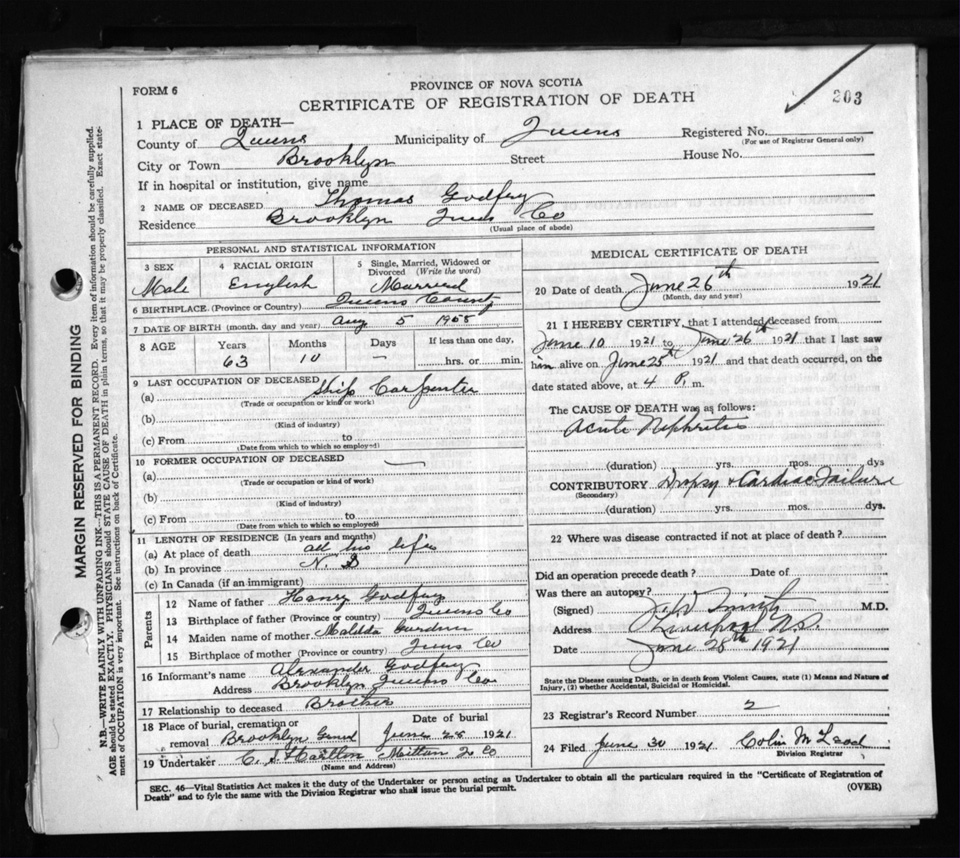 PROVINCE OF NOVA SCOTIA
FORM 6
CERTIFICATE OF REGISTRATION OF DEATH
203
1 PLACE OF DEATH—
County of Queens Municipality of Queens Registered No.
(For use of Registrar General only)
City or Town Brooklyn Street House No.
If in hospital or institution, give name
2 NAME OF DECEASED Thomas Godfrey
Residence Brooklyn Queens Co
(Usual place of abode)
PERSONAL AND STATISTICAL INFORMATION
3 SEX 4 RACIAL ORIGIN 5 Single, Married, Widowed or Divorced (Write the word)
Male English Married
6 BIRTHPLACE (Province or Country) Queens County
7 DATE OF BIRTH (month, day and year) Aug 5
8 AGE Years Months Days If less than one day,
63 10 — hrs. or min.
9 LAST OCCUPATION OF DECEASED
(a) Ship Carpenter
(Trade or occupation or kind or work)
(b)
(Kind of industry)
(c) From to
(Date from which to which so employed)
10 FORMER OCCUPATION OF DECEASED
(a)
(Trade or occupation or kind of work)
(b)
(Kind of industry)
(c) From to
(Date from which to which so employed)
11 LENGTH OF RESIDENCE (In years and months)
(a) At place of death all his life
(b) In province N. S
(c) In Canada (if an immigrant)
Parents
12 Name of father Henry Godfrey
13 Birthplace of father (Province or Country) Queens Co
14 Maiden name of mother Matilda
15 Birthplace of mother (Province or Country) Queens Co
16 Informant's name Alexander Godfrey
Address Brooklyn Queens Co
17 Relationship to deceased Brother
18 Place of burial, cremation or removal Brooklyn Date of burial June 28 1921
19 Undertaker C. S.
(Name and Address)
MEDICAL CERTIFICATE OF DEATH
20 Date of death June 26th 1921
(Month, day and year)
21 I HEREBY CERTIFY, that I attended deceased from
June 10 1921 to June 26th 1921 that I last saw
him alive on June 25th 1921 and that death occurred, on the
date stated above, at 4 P. m.
The CAUSE OF DEATH was as follows:
Acute Nephritis
(duration) yrs. mos. dys
CONTRIBUTORY Dropsy & Cardiac Failure
(Secondary)
(duration) yrs. mos. dys.
22 Where was disease contracted if not at place of death?
Did an operation precede death? Date of
Was there an autopsy?
(Signed) M.D.
Address Liverpool N.S.
Date June 28th 1921
State the Disease causing Death, or in death from Violent Causes, state (1) Means and Nature of
Injury, (2) whether Accidental, Suicidal or Homicidal.
23 Registrar's Record Number 2
24 Filed June 30 1921 Colin McLeod
Division Registrar
SEC. 46—Vital Statistics Act makes it the duty of the Undertaker or person acting as Undertaker to obtain all the particulars required in the "Certificate of Registration of
Death" and to fyle the same with the Division Registrar who shall issue the burial permit. (OVER)
MARGIN RESERVED FOR BINDING
N.B.—WRITE PLAINLY WITH UNFADING INK—THIS IS A PERMANENT RECORD. Every item of information should be carefully supplied.
AGE should be stated EXACTLY. PHYSICIANS should STATE CAUSE OF DEATH in plain terms, so that it may be properly classified. Exact state-
ment of OCCUPATION is very important. See instructions on back of Certificate.